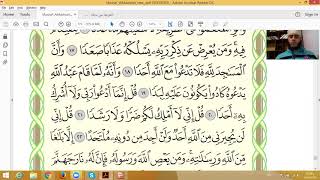 فِيهِ وَمَن يُعْرِضْ عَن ذِكْرِ رَبِّهِۦ يَسْلُكْهُ عَذَابًا صَعَدًا ١٧ وَأَنَّ
ٱلْمَسَٰجِدَ لِلَّهِ فَلَا تَدْعُوا۟ مَعَ ٱللَّهِ أَحَدًا ١٨ وَأَنَّهُۥ لَمَّا قَامَ عَبْدُ ٱللَّهِ
يَدْعُوهُ كَادُوا۟ يَكُونُونَ عَلَيْهِ لِبَدًا ١٩ قُلْ إِنَّمَآ أَدْعُوا۟ رَبِّى وَلَآ أُشْرِكُ
بِهِۦٓ أَحَدًا ٢٠ قُلْ إِنِّى لَآ أَمْلِكُ لَكُمْ ضَرًّا وَلَا رَشَدًا ٢١ قُلْ إِنِّى
لَن يُجِيرَنِى مِنَ ٱللَّهِ أَحَدٌ وَلَنْ أَجِدَ مِن دُونِهِۦ مُلْتَحَدًا ٢٢ إِلَّا بَلَٰغًا
مِّنَ ٱللَّهِ وَرِسَٰلَٰتِهِۦ وَمَن يَعْصِ ٱللَّهَ وَرَسُولَهُۥ فَإِنَّ لَهُۥ نَارَ جَهَنَّمَ